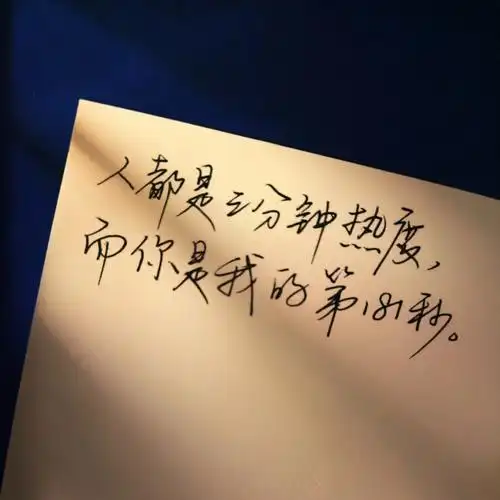 人都是三分钟热度,
而你是我的第181秒。